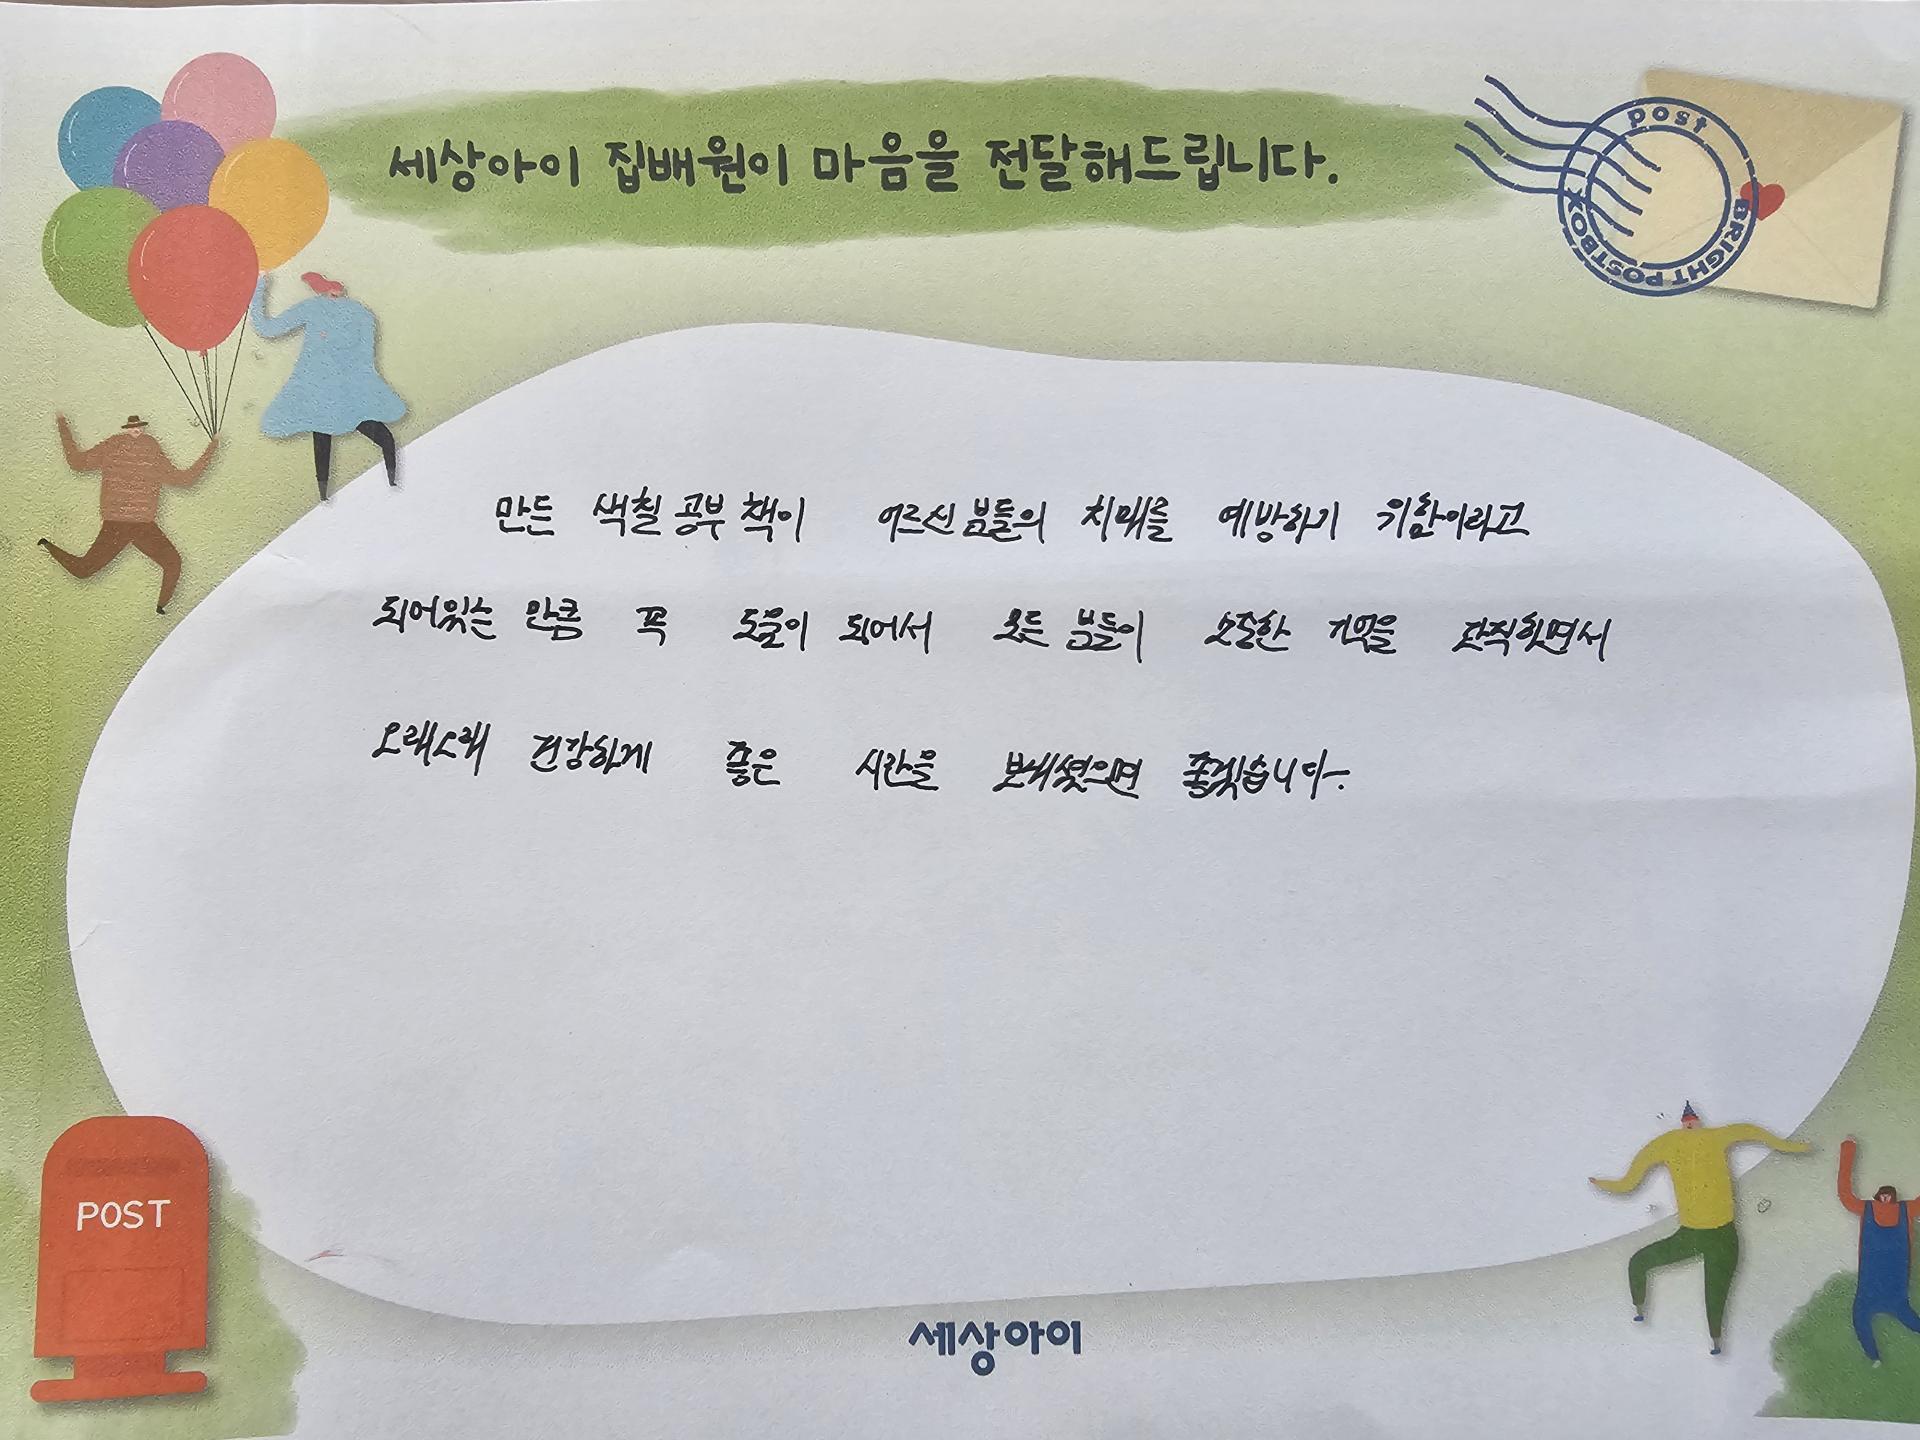 세상아이 집배원이 마음을 전달해드립니다.
post
BRIGHT POSTBOX
만든 색칠 공부 책이 어르신 분들의 치매를 예방하기 위함이라고
되어있는 만큼 꼭 도움이 되어서 모든 분들이 소중한 기억을 간직하면서
오래오래 건강하게 좋은 시간을 보내셨으면 좋겠습니다.
POST
세상아이